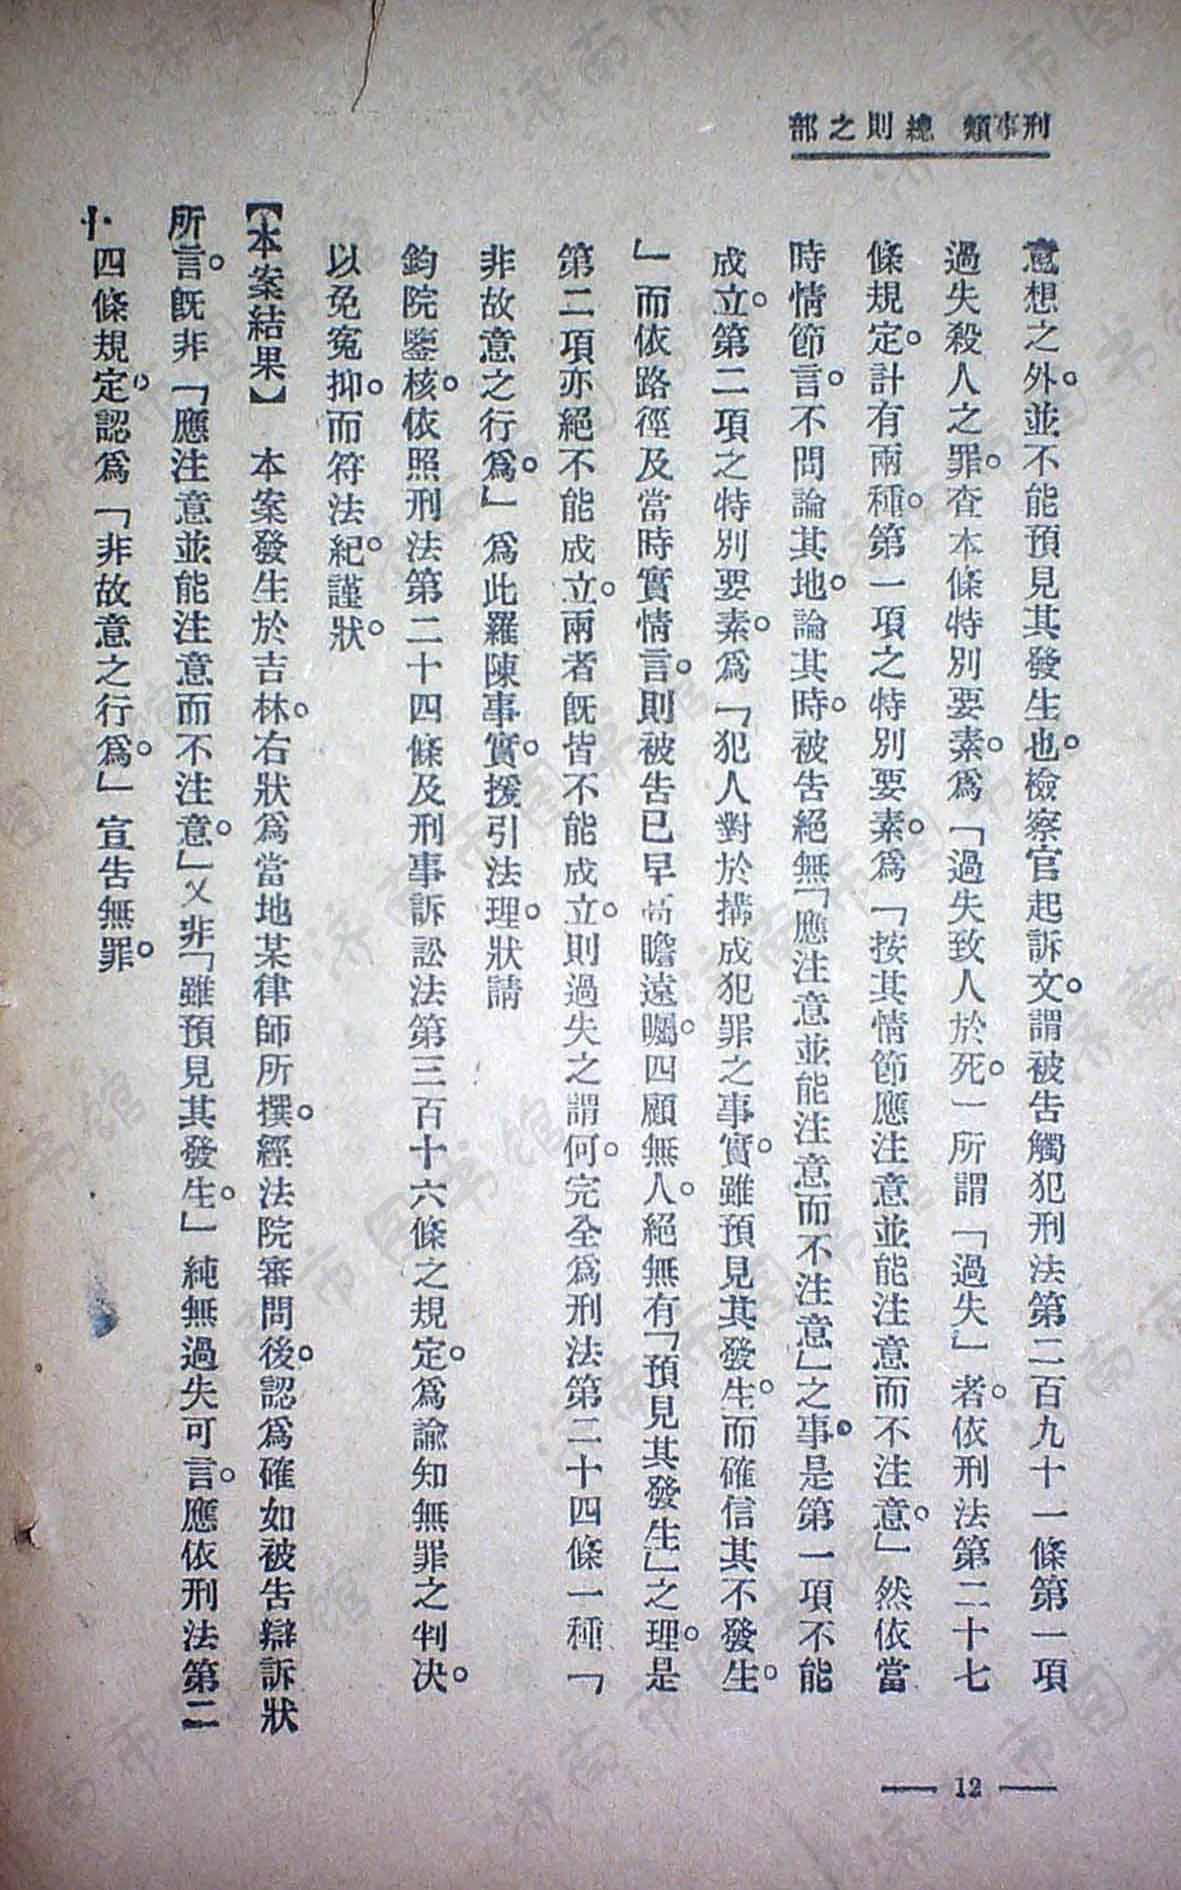 刑事類 總則之部
意想之外。並不能預見其發生也。檢察官起訴文。謂被告觸犯刑法第二百九十一條第一項
過失殺人之罪。查本條特別要素。爲「過失致人於死。」所謂「過失」者。依刑法第二十七
條規定。計有兩種。第一項之特別要素。爲「按其情節應注意並能注意而不注意。」然依當
時情節言。不問論其地。論其時。被告絕無「應注意並能注意而不注意」之事。是第一項不能
成立。第二項之特別要素。爲「犯人對於搆成犯罪之事實。雖預見其發生。而確信其不發生。
」而依路徑及當時實情言。則被告已早高瞻遠矚。四顧無人。絕無有「預見其發生」之理。是
第二項亦絕不能成立。兩者既皆不能成立。則過失之謂何。完全爲刑法第二十四條一種「
非故意之行爲。」爲此羅陳事實。援引法理。狀請
鈞院鑒核。依照刑法第二十四條及刑事訴訟法第三百十六條之規定。爲諭知無罪之判决。
以免寃抑。而符法紀。謹狀。
【本案結果】 本案發生於吉林。右狀爲當地某律師所撰。經法院審問後。認爲確如被告辯訴狀
所言。旣非「應注意並能注意而不注意。」又非「雖預見其發生。」純無過失可言。應依刑法第二
十四條規定。認爲「非故意之行爲。」宣告無罪。
— 12 —
济南市图书馆